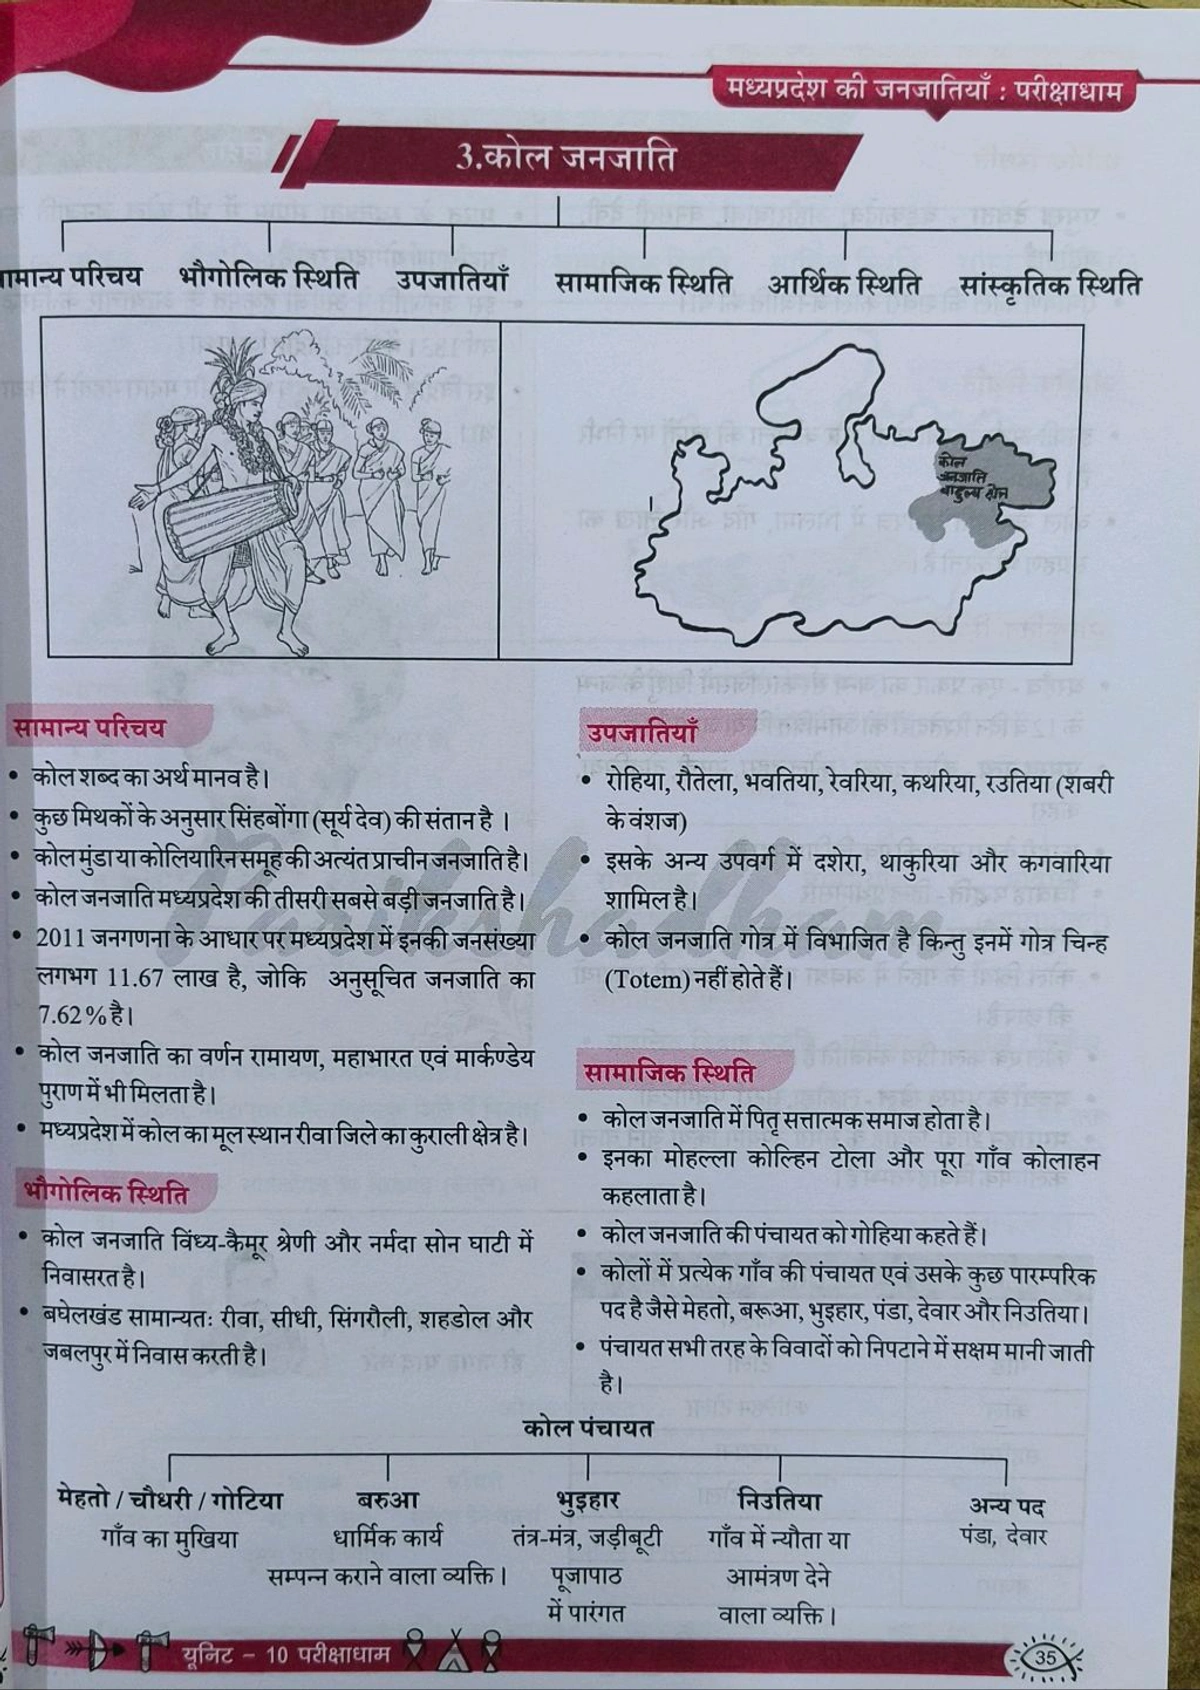 मध्यप्रदेश की जनजातियाँ : परीक्षाधाम
3.कोल जनजाति
सामान्य परिचय भौगोलिक स्थिति उपजातियाँ सामाजिक स्थिति आर्थिक स्थिति सांस्कृतिक स्थिति
कोल
जनजाति
बाहुल्य क्षेत्र
सामान्य परिचय
• कोल शब्द का अर्थ मानव है।
• कुछ मिथकों के अनुसार सिंहबोंगा (सूर्य देव) की संतान है ।
• कोल मुंडा या कोलियारिन समूह की अत्यंत प्राचीन जनजाति है।
• कोल जनजाति मध्यप्रदेश की तीसरी सबसे बड़ी जनजाति है।
• 2011 जनगणना के आधार पर मध्यप्रदेश में इनकी जनसंख्या
लगभग 11.67 लाख है, जोकि अनुसूचित जनजाति का
7.62% है।
• कोल जनजाति का वर्णन रामायण, महाभारत एवं मार्कण्डेय
पुराण में भी मिलता है।
• मध्यप्रदेश में कोल का मूल स्थान रीवा जिले का कुराली क्षेत्र है।
भौगोलिक स्थिति
• कोल जनजाति विंध्य-कैमूर श्रेणी और नर्मदा सोन घाटी में
निवासरत है।
• बघेलखंड सामान्यतः रीवा, सीधी, सिंगरौली, शहडोल और
जबलपुर में निवास करती है।
उपजातियाँ
• रोहिया, रौतेला, भवतिया, रेवरिया, कथरिया, रउतिया (शबरी
के वंशज)
• इसके अन्य उपवर्ग में दशेरा, थाकुरिया और कगवारिया
शामिल है।
• कोल जनजाति गोत्र में विभाजित है किन्तु इनमें गोत्र चिन्ह
(Totem) नहीं होते हैं।
सामाजिक स्थिति
• कोल जनजाति में पितृ सत्तात्मक समाज होता है।
• इनका मोहल्ला कोल्हिन टोला और पूरा गाँव कोलाहन
कहलाता है।
• कोल जनजाति की पंचायत को गोहिया कहते हैं।
• कोलों में प्रत्येक गाँव की पंचायत एवं उसके कुछ पारम्परिक
पद है जैसे मेहतो, बरूआ, भुइहार, पंडा, देवार और निउतिया।
• पंचायत सभी तरह के विवादों को निपटाने में सक्षम मानी जाती
है।
Parikshadham
कोल पंचायत
मेहतो / चौधरी / गोटिया बरुआ भुइहार निउतिया अन्य पद
गाँव का मुखिया धार्मिक कार्य तंत्र-मंत्र, जड़ीबूटी गाँव में न्यौता या पंडा, देवार
सम्पन्न कराने वाला व्यक्ति। पूजापाठ आमंत्रण देने
में पारंगत वाला व्यक्ति।
यूनिट – 10 परीक्षाधाम
35